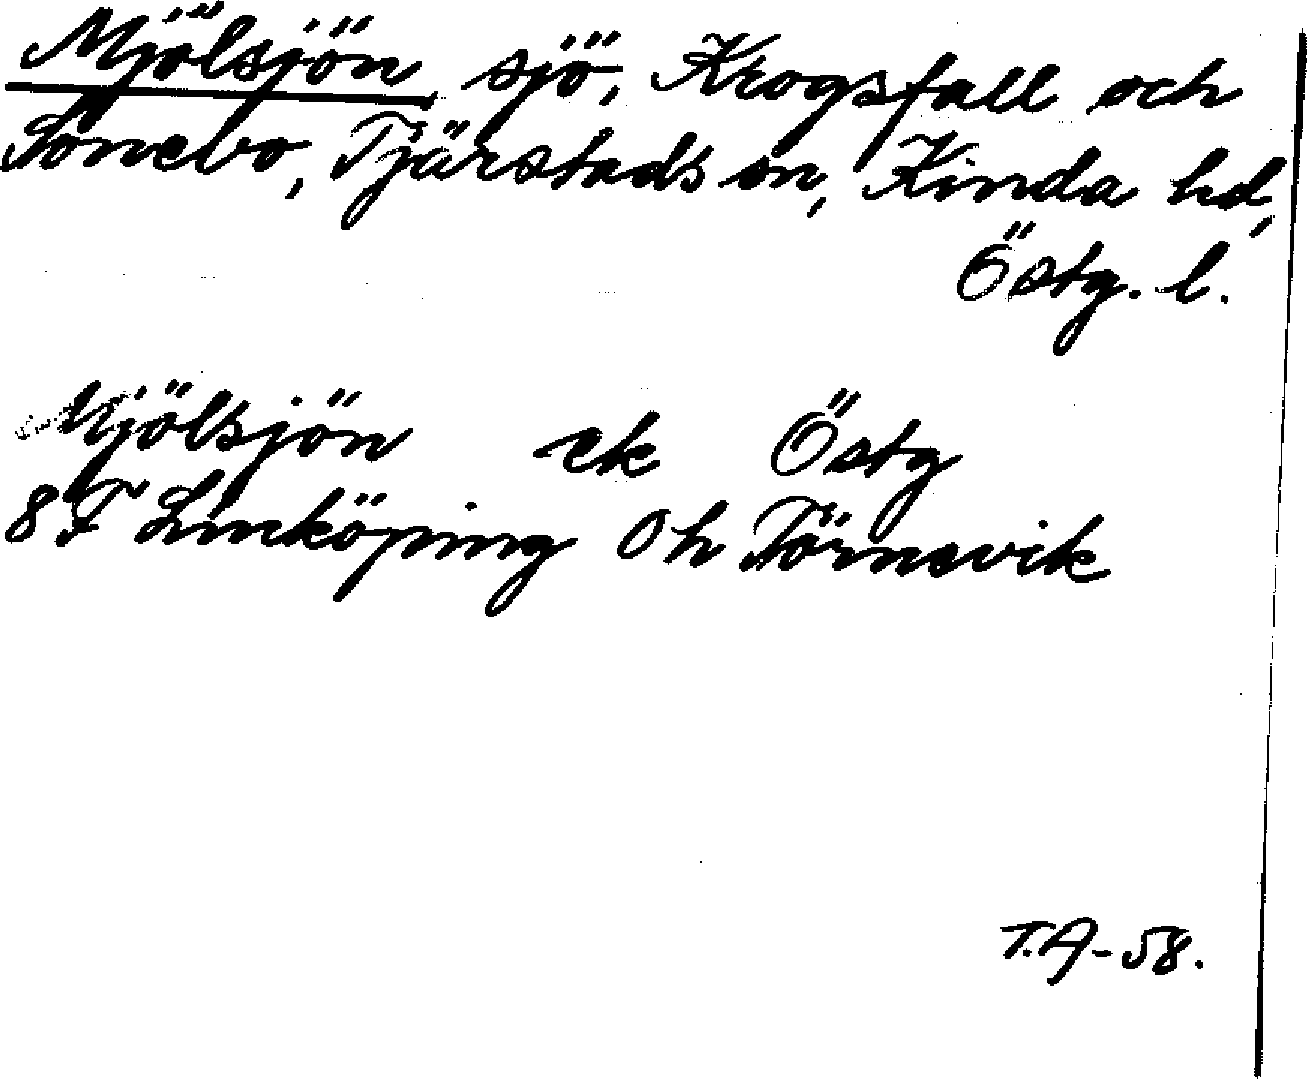 Mjölsjön, sjö, Krogsfall och
Sonebo, Tjärstads sn, Kinda hd,
Östg. l.
Mjölsjön ek Östg
8F Linköping Oh Törnevik
T.A-58.